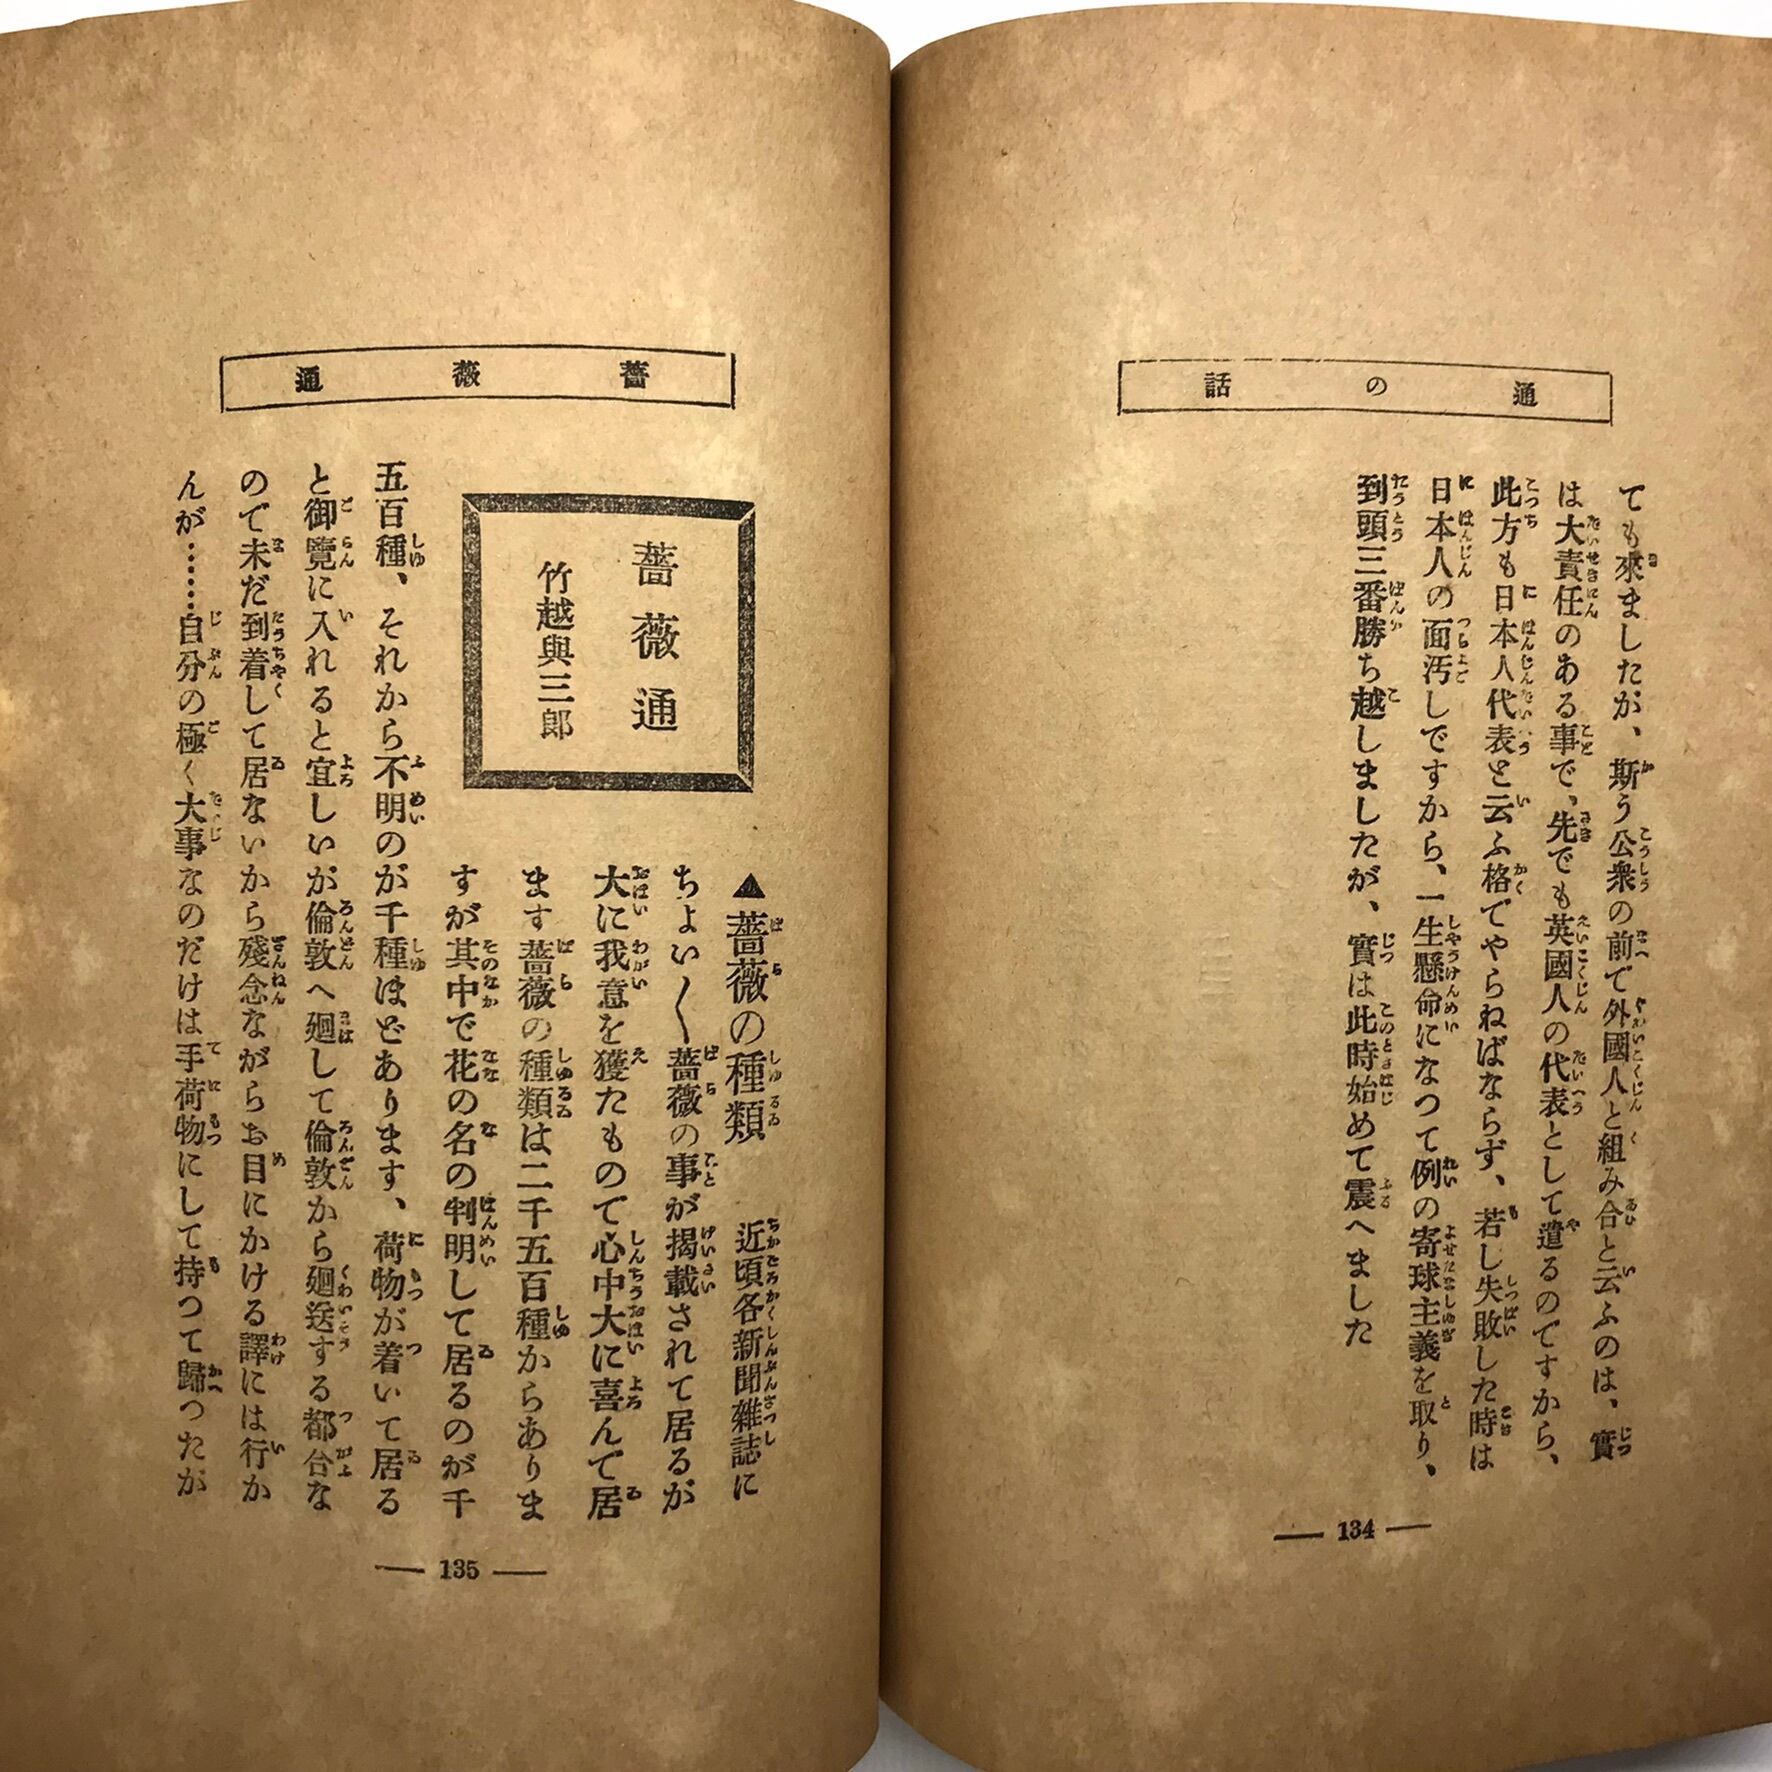 通の話
ても來ましたが、斯う公衆の前で外國人と組み合と云ふのは、實
は大責任のある事で、先でも英國人の代表として遣るのですから、
此方も日本人代表と云ふ格でやらねばならず、若し失敗した時は
日本人の面汚しですから、一生懸命になつて例の寄球主義を取り、
到頭三番勝ち越しましたが、實は此時始めて震へました
134
薔薇通
薔薇通
竹越與三郎
▲薔薇の種類 近頃各新聞雜誌に
ちょい〱薔薇の事が揭載されて居るが
大に我意を獲たもので心中大に喜んで居
ます薔薇の種類は二千五百種からありま
すが其中で花の名の判明して居るのが千
五百種、それから不明のが千種ほどあります、荷物が着いて居る
と御覽に入れると宜しいが倫敦へ廻して倫敦から廻送する都合な
ので未だ到着して居ないから殘念ながらお目にかける譯には行か
んが……自分の極く大事なのだけは手荷物にして持つて歸つたが
135